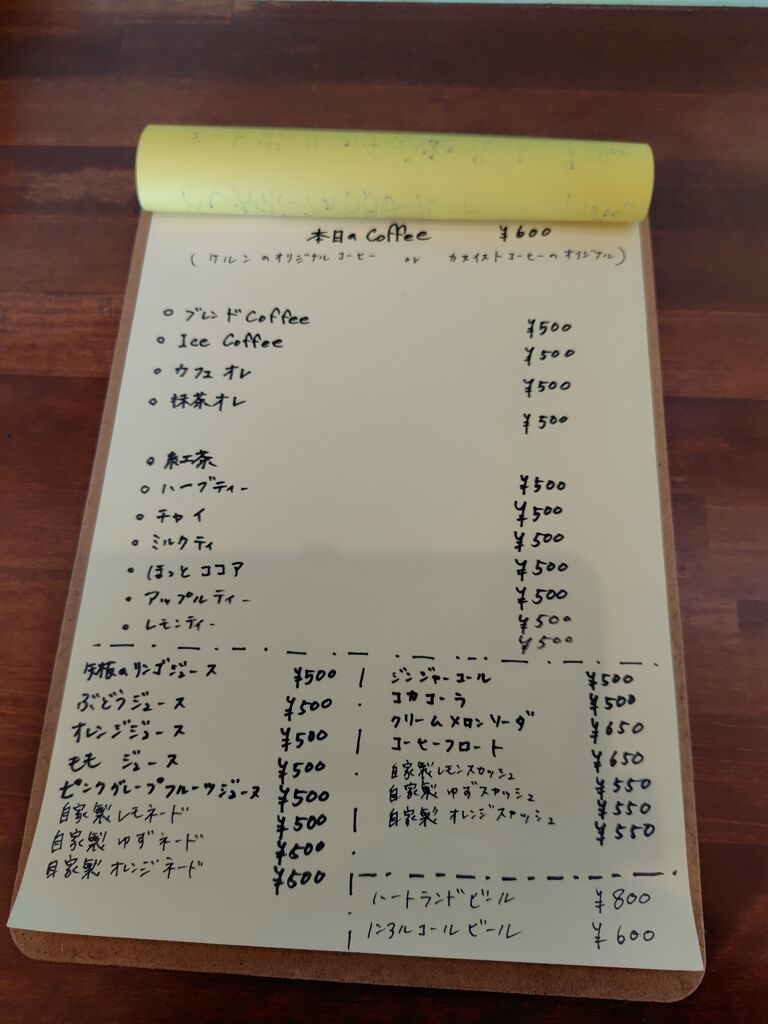 本日のCoffee ¥600
(ケルンのオリジナルコーヒー or カヌイストコーヒーのオリジナル)
○ ブレンドCoffee ¥500
○ Ice Coffee ¥500
○ カフェオレ ¥500
○ 抹茶オレ ¥500
○ 紅茶 ¥500
○ ハーブティー ¥500
○ チャイ ¥500
○ ミルクティ ¥500
○ ほっとココア ¥500
○ アップルティー ¥500
○ レモンティー ¥500
のリンゴジュース ¥500
ぶどうジュース ¥500
オレンジジュース ¥500
モモ ジュース ¥500
ピンクグレープフルーツジュース ¥500
自家製レモネード ¥500
自家製 ゆずネード ¥500
自家製 オレンジネード ¥500
ジンジャーエール ¥500
コカコーラ ¥500
クリームメロンソーダ ¥650
コーヒーフロート ¥650
自家製レモンスカッシュ ¥550
自家製 ゆずスカッシュ ¥550
自家製 オレンジスカッシュ ¥550
ハートランドビール ¥800
ノンアルコールビール ¥600